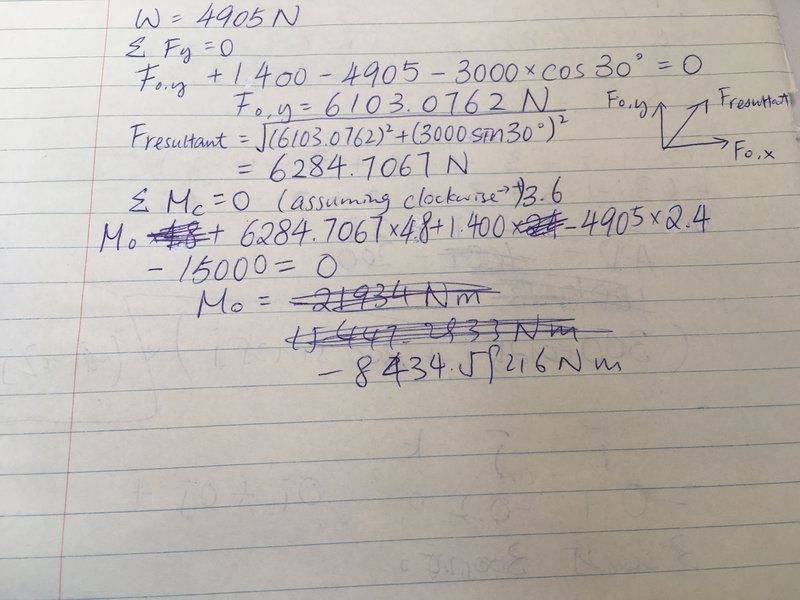 W = 4905 N
Σ Fy = 0
Fo,y + 1.400 - 4905 - 3000 × cos 30° = 0
Fo,y = 6103.0762 N
Fresultant = √(6103.0762)² + (3000 sin 30°)²
= 6284.7067 N
Fo,y Fresultant
Fo,x
Σ Mc = 0 (assuming clockwise → +) 3.6
Mo + 6284.7067 × 4.8 + 1.400 × - 4905 × 2.4
- 15000 = 0
Mo = - 21934 Nm
- 8434.55216 N m